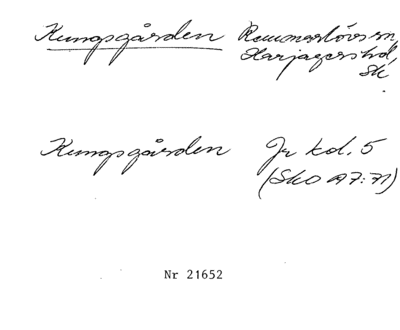 Kungsgården Remmarlövs sn,
Harjagers hd,
Sk.
Kungsgården Jr kd. 5
(Sko A7:71)
Nr 21652